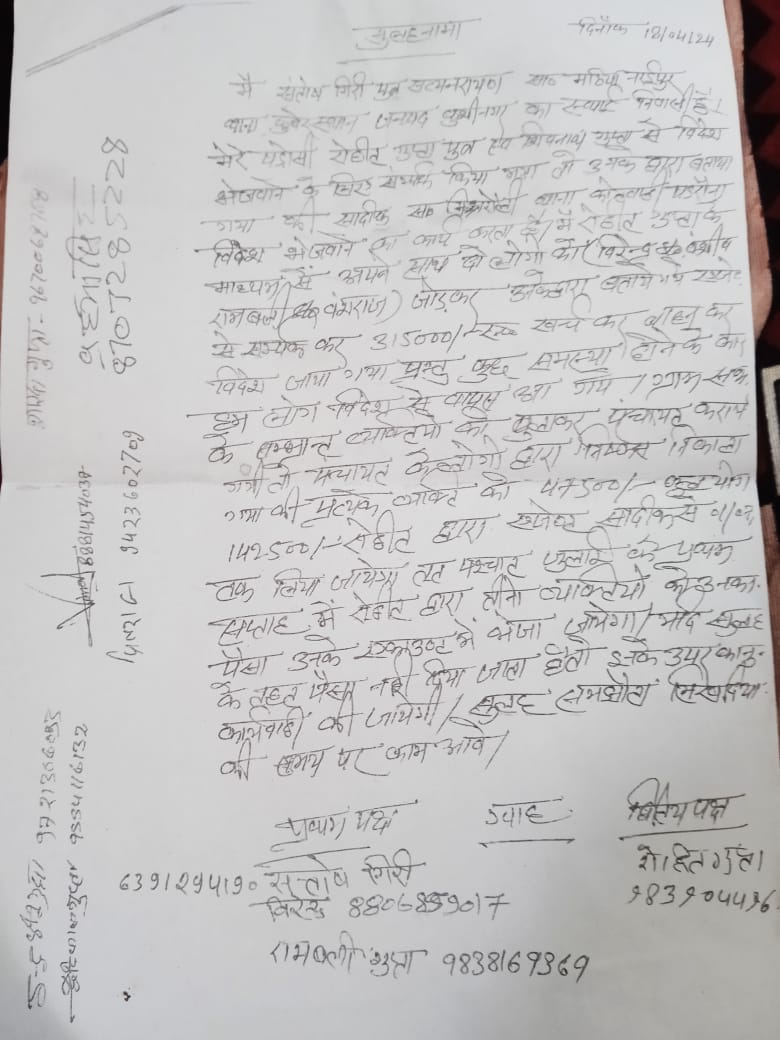 सुलहनामा
दिनाँक 18/04/24
मै संतोष गिरी पुत्र सत्यनरायण सा० मठिया
थाना कुबेरस्थान जनपद कुशीनगर का स्थाई निवासी हूँ।
मेरे पड़ोसी रोहीत गुप्ता पुत्र शिवनाथ गुप्ता से विदेश
भेजवाने के लिए सम्पर्क किया गया तो उनके द्वारा बताया
गया की सादीक सा० थाना कोतवाली पडरौना
विदेश भेजवाने का कार्य करता है। मै रोहीत गुप्ता के
माध्यम से अपने साथ दो लोगो को (विरेन्द्र
रामबली वंशराज) जोड़कर उनके द्वारा बताये गये एजेन्ट
से सम्पर्क कर 315000/- रू० खर्च कर
विदेश जाया गया परन्तु कुछ समस्या होने के
हम लोग विदेश से वापस आ गये। ग्राम
के सम्भ्रान्त व्यक्तियो को बुलाकर पंचायत कराये
गयी तो पंचायत के लोगो द्वारा निकाला
गया की प्रत्येक व्यक्ति को 47500/- कुल योग
142500/- रोहीत द्वारा एजेन्ट सादीक से
तक लिया जायेगा तत पश्चात जुलाई के प्रथम
सप्ताह में रोहीत द्वारा तीनो व्यक्तियो को उनका
पैसा उनके एकाउन्ट में भेजा जायेगा। यदि सुलह
के तहत पैसा नही दिया जाता है तो इनके उपर
कार्यवाही की जायेगी। सुलह समझौता लिख दिया
की समय पर काम आवे।
प्रथम पक्ष
गवाह
द्वितीय पक्ष
6391294190 संतोष गिरी
रोहित गुप्ता
विरेन्द्र
रामबली गुप्ता 9838169369
गुप्ता - 9670068708
8107285228
8881454037
9423602709
9721306095
9554116132